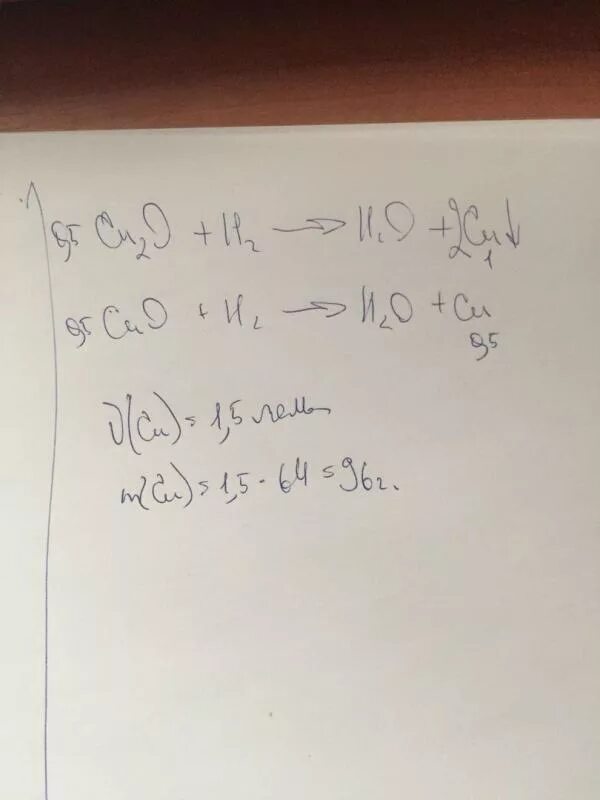 1
0,5 Cu₂O + H₂ → H₂O + 2Cu↓
1
0,5 CuO + H₂ → H₂O + Cu
0,5
ν(Cu) = 1,5 моль
m(Cu) = 1,5 · 64 = 96 г.